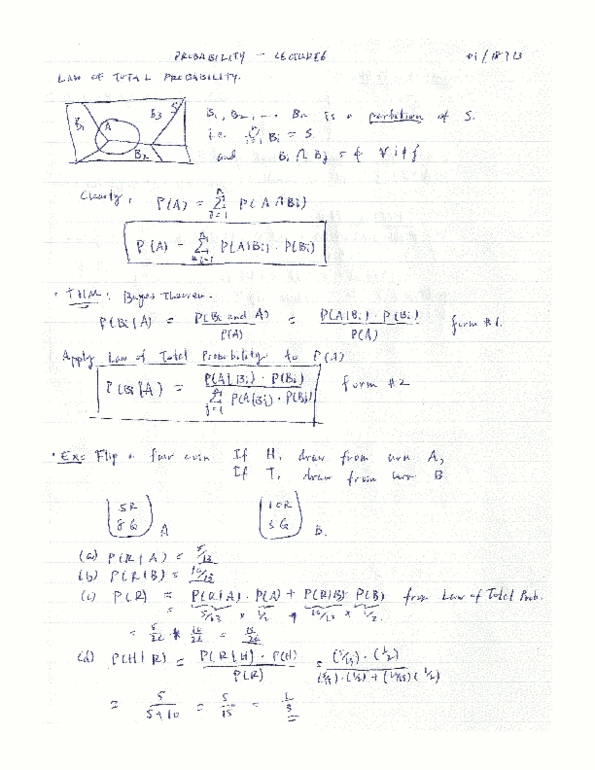 PROBABILITY - LECTURE 6
LAW OF TOTAL PROBABILITY.
B1 A B3 S
B2
B1, B2, ... Bn is a partition of S.
i.e. ⋃ Bi = S
and Bi ∩ Bj = ϕ ∀ i ≠ j
Clearly, P(A) = Σ P(A ∩ Bi)
P(A) = Σ P(A|Bi) · P(Bi)
• THM: Bayes Theorem.
P(Bi|A) = P(Bi and A) / P(A) = P(A|Bi) · P(Bi) / P(A) form #1.
Apply Law of Total Probability to P(A)
P(Bi|A) = P(A|Bi) · P(Bi) / Σ P(A|Bi) · P(Bi) form #2
• Ex: Flip a fair coin If H, draw from urn A,
If T, draw from urn B
5R 10R
8G A 3G B.
(a) P(R|A) = 5/13
(b) P(R|B) = 10/13
(c) P(R) = P(R|A) · P(A) + P(R|B) · P(B) from Law of Total Prob.
= 5/13 × 1/2 + 10/13 × 1/2
= 5/26 + 10/26 = 15/26
(d) P(H|R) = P(R|H) · P(H) / P(R) = (5/13) · (1/2) / (5/13) · (1/2) + (10/13) (1/2)
= 5 / 5+10 = 5/15 = 1/3